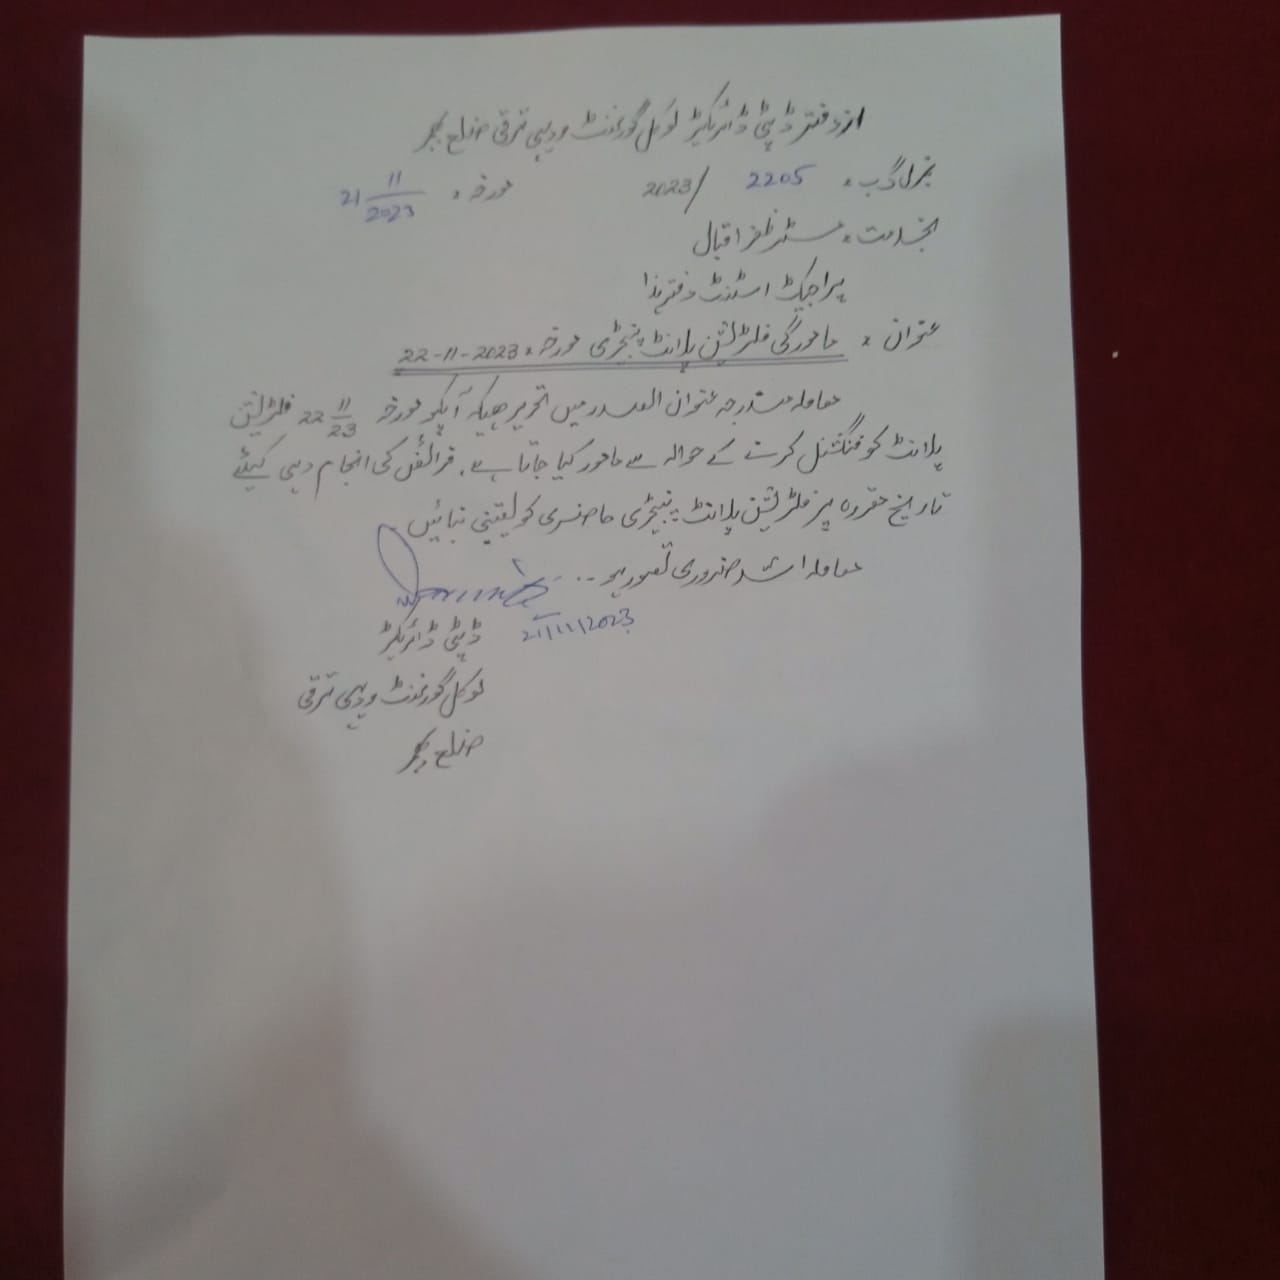 از دفتر ڈپٹی ڈائریکٹر لوکل گورنمنٹ و دیہی ترقی ضلع بھکر
2205 /2023 مورخہ 21 11/2023
بخدمت مسٹر ظفر اقبال
پراجیکٹ اسٹنٹ دفتر ہذا
عنوان مامورگی فلٹریشن پلانٹ مورخہ 22-11-2023
معاملہ مندرجہ عنوان الصدر میں تحریر ھیکہ آپکو مورخہ 22 11/23 فلٹریشن
پلانٹ کو فنگشنل کرنے کے حوالہ سے مامور کیا جاتا ہے۔ فرائض کی انجام دہی کیلئے
تاریخ مقررہ پر فلٹریشن پلانٹ حاضری کو یقینی بنائیں۔
معاملہ اشد ضروری تصور ہو۔۔
21/11/2023
ڈپٹی ڈائریکٹر
لوکل گورنمنٹ و دیہی ترقی
ضلع بھکر